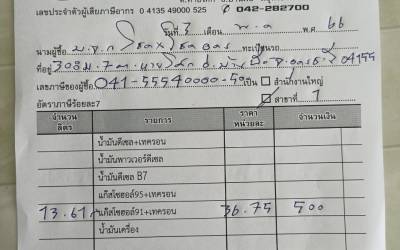 เลขประจำตัวผู้เสียภาษีอากร 0 4135 49000 525 042-282700
วันที่ 3 เดือน พ.ค พ.ศ 66
นามผู้ซื้อ ทะเบียนรถ
ที่อยู่ 308 ม.7 4155
เลขภาษีของผู้ซื้อ 041-55540000-59 เป็น สำนักงานใหญ่
อัตราภาษีร้อยละ7 สาขาที่ 1
จำนวน ลิตร รายการ ราคา หน่วยละ จำนวนเงิน
น้ำมันดีเซล+เทครอน
น้ำมันพาวเวอร์ดีเซล
น้ำมันดีเซล B7
แก๊สโซฮอล์95+เทครอน
13.61 แก๊สโซฮอล์91+เทครอน 36.75 500
น้ำมันเครื่อง